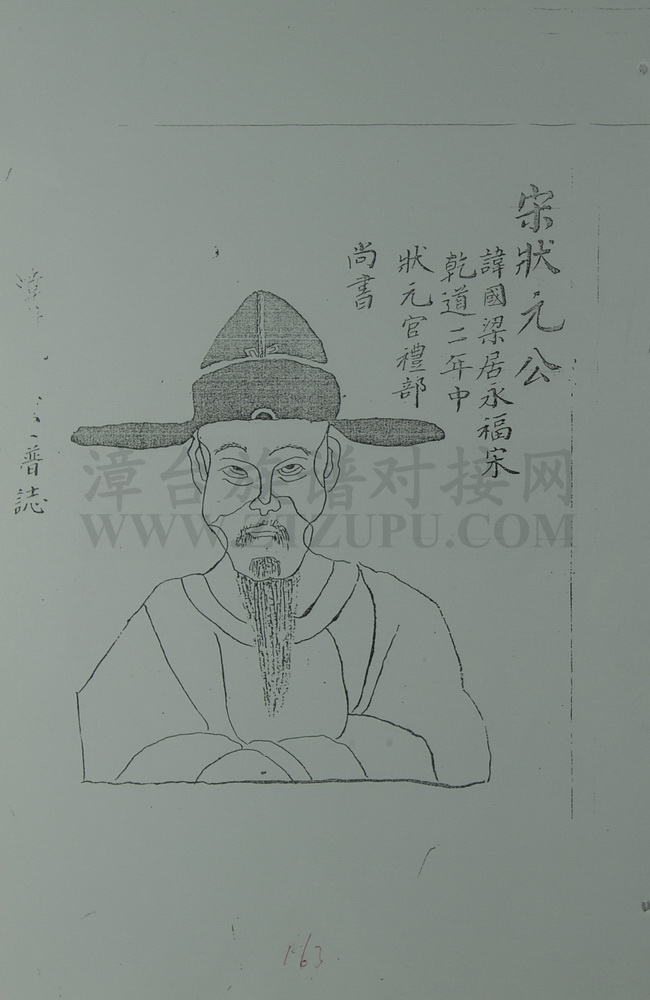 宋狀元公
諱國梁居永福宋
乾道二年中
狀元官禮部
尚書
漳
普誌
漳台族谱对接网
WWW.ZTZUPU.COM
163